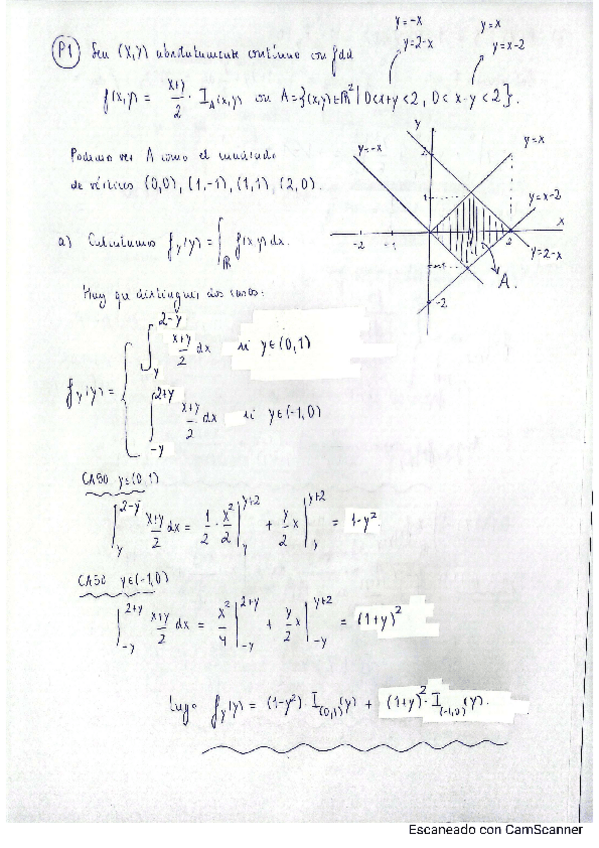 y=-x y=x
y=2-x y=x-2
P1 Sea (X,Y) absolutamente continuo con fdd
f(x,y) = x+y/2 · I_A(x,y) con A={(x,y)∈ℝ² | 0<x+y<2, 0<x-y<2}.
Podemos ver A como el cuadrado
de vértices (0,0), (1,-1), (1,1), (2,0).
y=-x
y
2
y=x
1
y=x-2
x
-2 -1 2
y=2-x
A.
-2
a) Calculamos f_Y(y) = ∫_ℝ f(x,y) dx.
Hay que distinguir dos casos:
∫_y^{2-y} x+y/2 dx si y∈(0,1)
f_Y(y) = {
∫_{-y}^{2+y} x+y/2 dx si y∈(-1,0)
CASO y∈(0,1)
∫_y^{2-y} x+y/2 dx = 1/2 · x²/2 |_y^{y+2} + y/2 x |_y^{y+2} = 1-y².
CASO y∈(-1,0)
∫_{-y}^{2+y} x+y/2 dx = x²/4 |_{-y}^{2+y} + y/2 x |_{-y}^{y+2} = (1+y)²
Luego f_Y(y) = (1-y²) · I_{(0,1)}(y) + (1+y)² · I_{(-1,0)}(y).
Escaneado con CamScanner